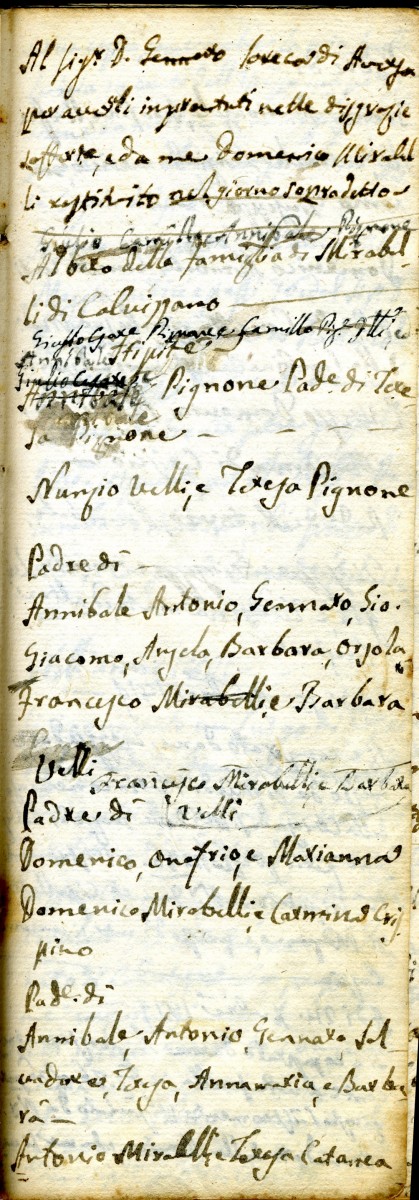 Al sig.r D. Gennaro di Aversa
per avergli improntati nelle disgrazie
sofferte, e da me Domenico Mirabel
li restituito nel giorno sopradetto
Giulio Camillo, Annibale Pignone
Albero della famiglia di Mirabel
li di Calvizzano
Giulio Cesare Pignone Camillo
Annibale Stipite
Giulio Cesare
Annibale Pignone Pad.e di Tere
sa Pignone
Nunzio Velli, e Teresa Pignone
Padre di
Annibale Antonio, Gennaro, Gio.
Giacomo, Angela, Barbara, Orsola
Francesco Mirabelli, e Barbara
Velli Francesco Mirabelli, e Barbara
Padre di Velli
Domenico, Onofrio, e Marianna
Domenico Mirabelli, e Carmina Cris
pino
Pad.e di
Annibale, Antonio, Gennaro, Sal
vadore, Teresa, Annamaria, e Barba
ra
Antonio Mirabelli, e Teresa Catanea